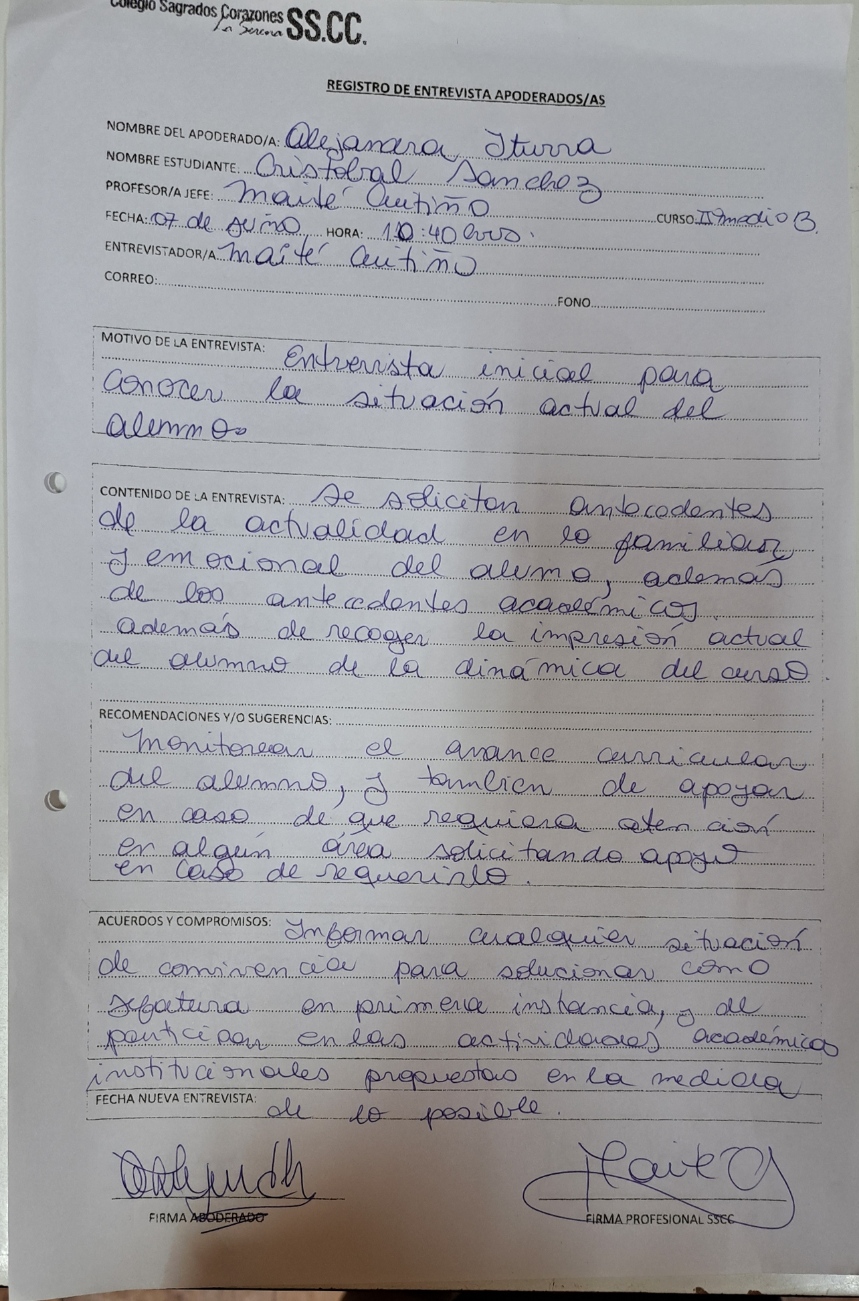 Colegio Sagrados Corazones SS.CC.
La Serena
REGISTRO DE ENTREVISTA APODERADOS/AS
NOMBRE DEL APODERADO/A: Alejandra Iturra
NOMBRE ESTUDIANTE: Cristobal Sanchez
PROFESOR/A JEFE: Maité Autiño CURSO medio B.
FECHA: 07 de Junio HORA: 10:40 hrs.
ENTREVISTADOR/A Maité Autiño
CORREO: FONO
MOTIVO DE LA ENTREVISTA: Entrevista inicial para
conocer la situación actual del
alumno
CONTENIDO DE LA ENTREVISTA: Se solicitan antecedentes
de la actualidad en lo familiar
y emocional del alumo, además
de los antecedentes académicos
además de recoger la impresión actual
del alumno de la dinámica del curso.
RECOMENDACIONES Y/O SUGERENCIAS:
Monitorear el avance curricular
del alumno, y tambien de apoyar
en caso de que requiera atención
en algún área solicitando apoyo
en caso de requerirlo.
ACUERDOS Y COMPROMISOS: Informar cualquier situación
de convivencia para solucionar como
jefatura en primera instancia, y de
participar en las actividades académicas
institucionales propuestas en la medida
FECHA NUEVA ENTREVISTA: de lo posible.
FIRMA ABODERADO FIRMA PROFESIONAL SSCC